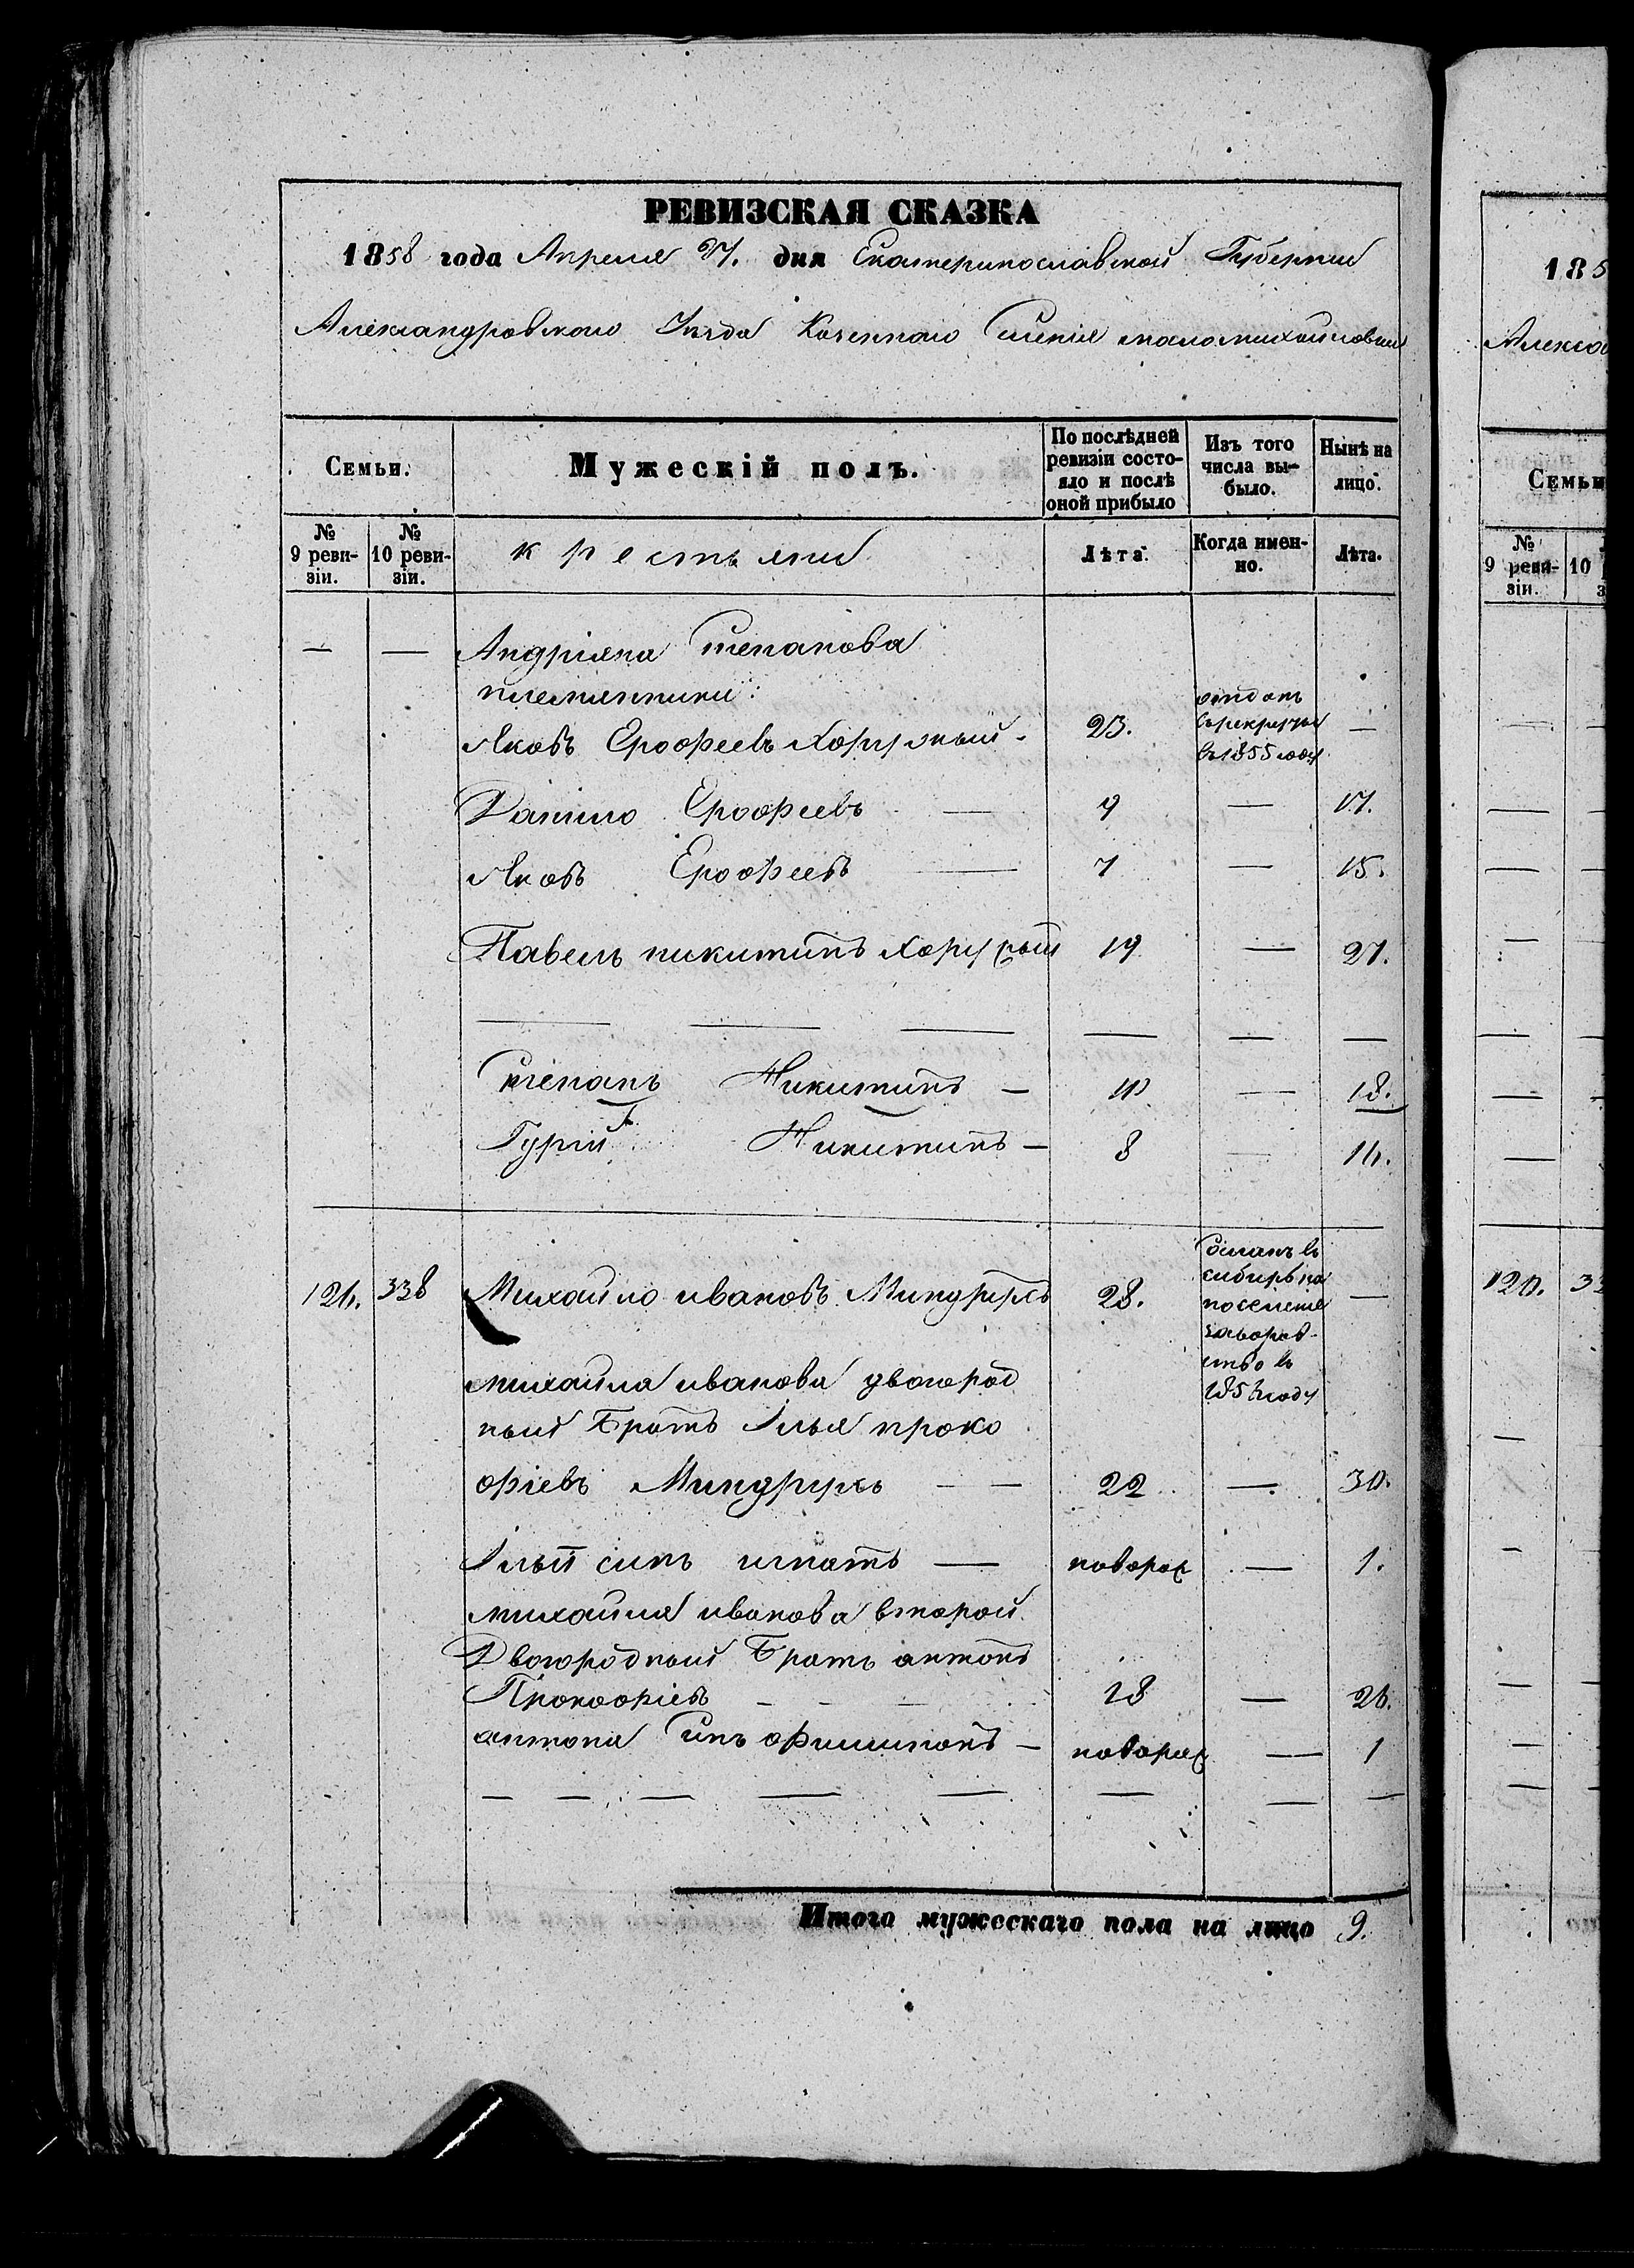 РЕВИЗСКАЯ СКАЗКА
1858 года Апреля 27. дня Екатеринославской Губернии
Александровского Уезда Казенного Селенія маломихайловки
Семьи.
Мужескій полъ.
По послѣдней ревизіи состо-
яло и послѣ
оной прибыло
Изъ того
числа вы-
было.
Нынѣ на
лицо.
№
9 реви-
зіи.
№
10 реви-
зіи.
крестьяне
Лѣта.
Когда имен-
но.
Лѣта.
— — Андріяна Степанова
племянники:
Яковъ Ерофеевъ Хоружный. 23. отданъ
въ рекруты
въ 1855 году —
Данило Ерофеевъ — 9 — 17.
Яковъ Ерофеевъ — 7 — 15.
Павелъ никитинъ 19 — 27.
— — — — — —
Степанъ Никитинъ — 10 — 18.
Гурій Никитинъ — 8 — 16.
126. 338 Михайло ивановъ Миндрухъ 28. Сосланъ въ
сибирь на
поселеніе
за воров-
ство въ
185 году —
михайла иванова двоюрод
ный Братъ Илья проко
фіевъ Миндрухъ — — 22 — 30.
Ильи синъ игнатъ — новорож — 1.
михайла иванова второй
Двоюродный Братъ антонъ
Прокофіевъ — — — 18 — 26.
антона Синъ филимонъ — новорож — 1
— — — — — — — —
Итого мужескаго пола на лицо 9.
185
Алексан
Семьи
№
9 реви-
зіи.
10
120. 33